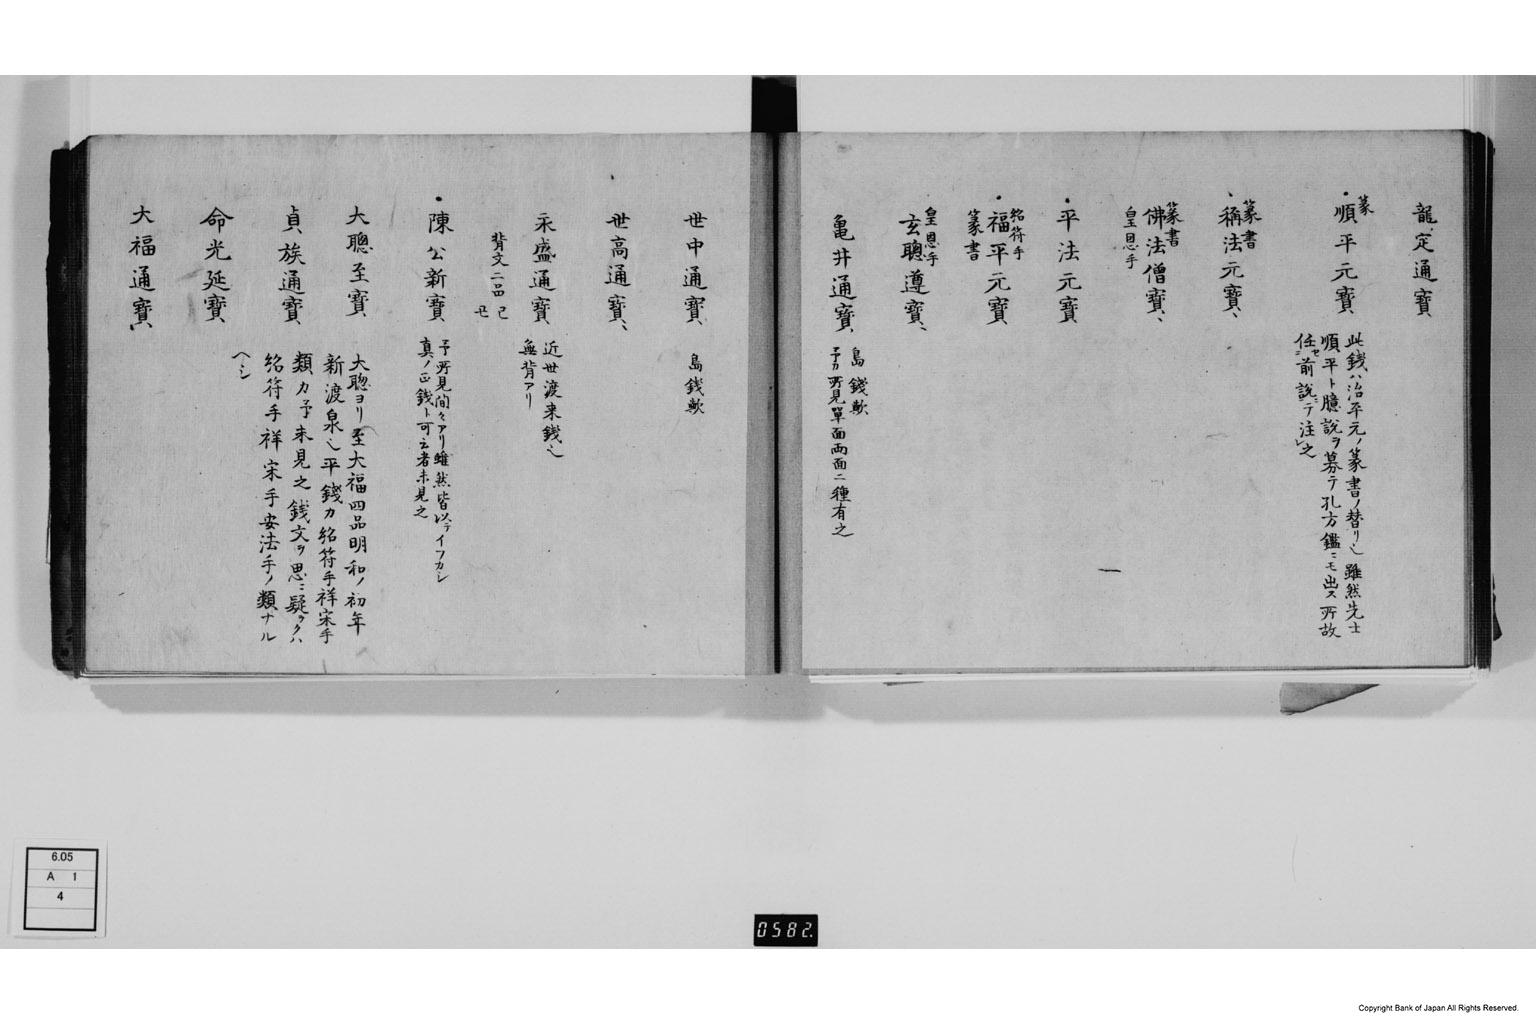 龍定通寳
篆
・順平元寳
此錢ハ治平元ノ篆書ノ替リ也雖然先士
順平ト臆説ヲ募テ孔方鑑ニモ出ス所故
任セ前説ニテ注之
篆書
・稱法元寳
篆書
佛法僧寳
皇恩手
・平法元寳
紹符手
・福平元寳
篆書
皇恩手
玄聰遵寳
亀井通寳
島錢歟
予カ所見單面両面二種有之
世中通寳
島錢歟
世高通寳
永盛通寳
近世渡来錢也
無背アリ
背文二品
・陳公新寳
予所見間々アリ雖然皆以テイフカシ
真ノ正錢ト可云者未見之
大聰至寳
大聰ヨリ至大福四品明和ノ初年
新渡泉也平錢カ紹符手祥宋手
類カ予未見之錢文ヲ思ニ疑ラクハ
紹符手祥宋手安法手ノ類ナル
ヘシ
貞族通寳
命光延寳
大福通寳
6.05
A 1
4
0582.
Copyright Bank of Japan All Rights Reserved.